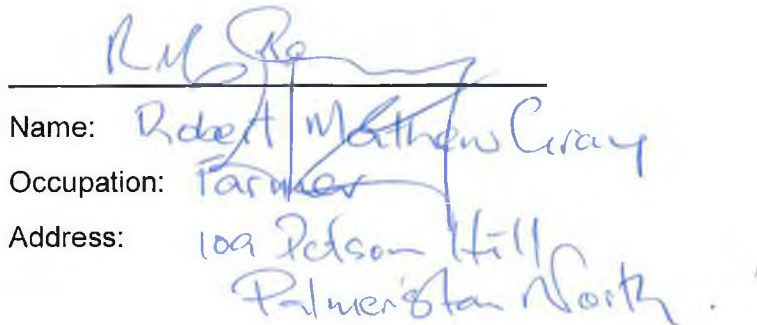 Name: Robert Mathew Gray
Occupation: Farmer
Address: 109 Polson Hill
Palmerston North.